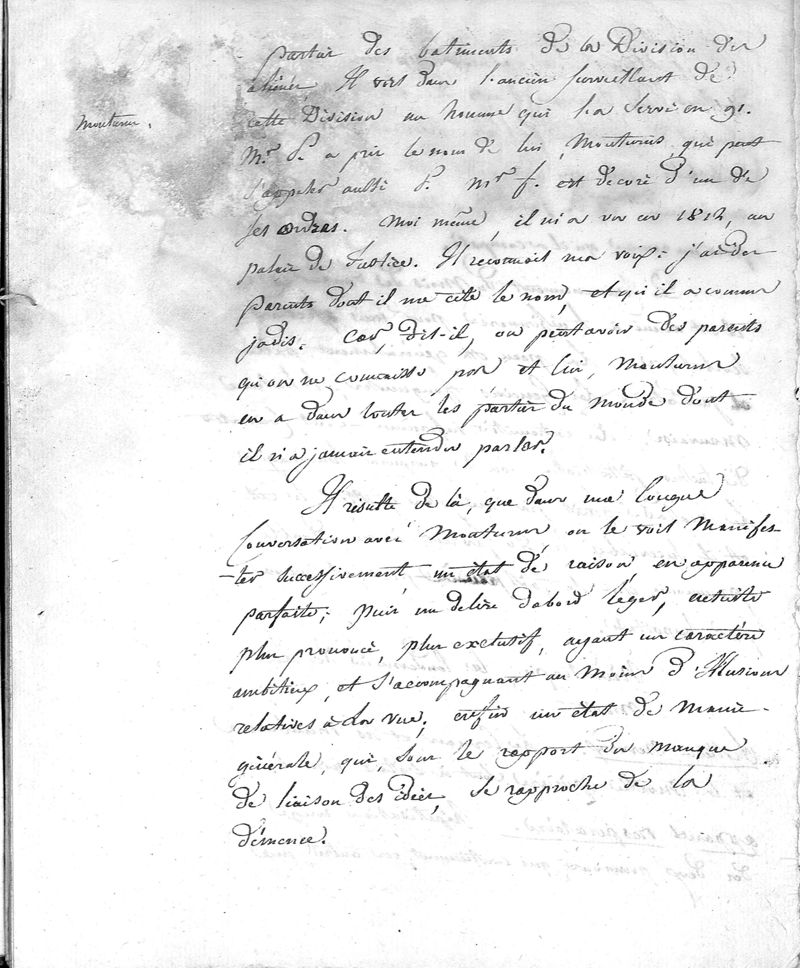 partie des batiments de la Division des
aliénés. Il voit dans l'ancien surveillant de
cette Division un homme qui l'a servi en 91.
Mouturus.
Mr. P. a pris le nom de lui, Mouturus, qui peut
s'appeler aussi P. Mr f. est décoré d'un de
ses ordres. Moi même, il m'a vu en 1812, au
palais de Justice. Il reconnoit ma voix: j'ai des
parents dont il me cite le nom, et qu'il a connus
jadis. Car, dit-il, on peut avoir des parents
qu'on ne connaisse pas et lui, Mouturus
en a dans toutes les parties du monde dont
il n'a jamais entendu parler.
Il résulte de là, que dans une longue
Conversation avec Mouturus on le voit Manifes-
-ter successivement un état de raison, en apparence
parfaite; puis un délire d'abord léger, ensuite
plus prononcé, plus exclusif, ayant un caractère
ambitieux, et s'accompagnant au moins d'Illusions
relatives à la vue; enfin un état de Manie
générale, qui, sous le rapport du manque
de liaison des idées, se rapproche de la
démence.